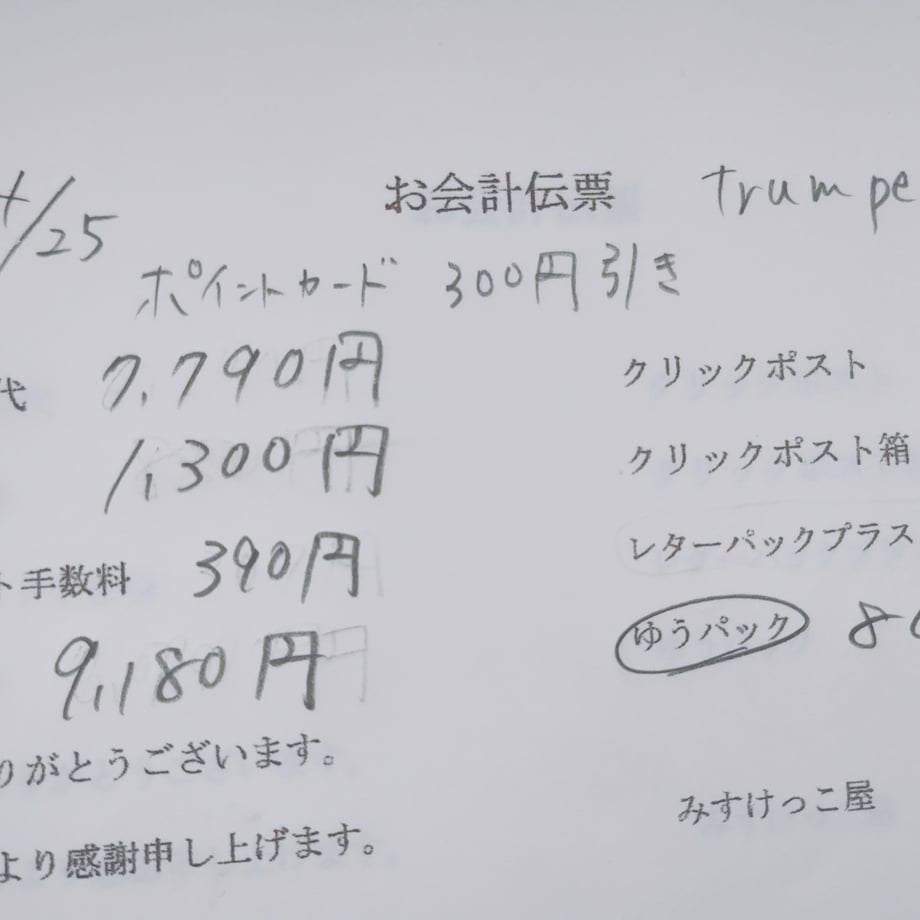 お会計伝票 trumpe
/25
ポイントカード 300円引き
代 7,790円 クリックポスト
1,300円 クリックポスト箱
ト手数料 390円 レターパックプラス
9,180円 ゆうパック 8
りがとうございます。
みすけっこ屋
より感謝申し上げます。